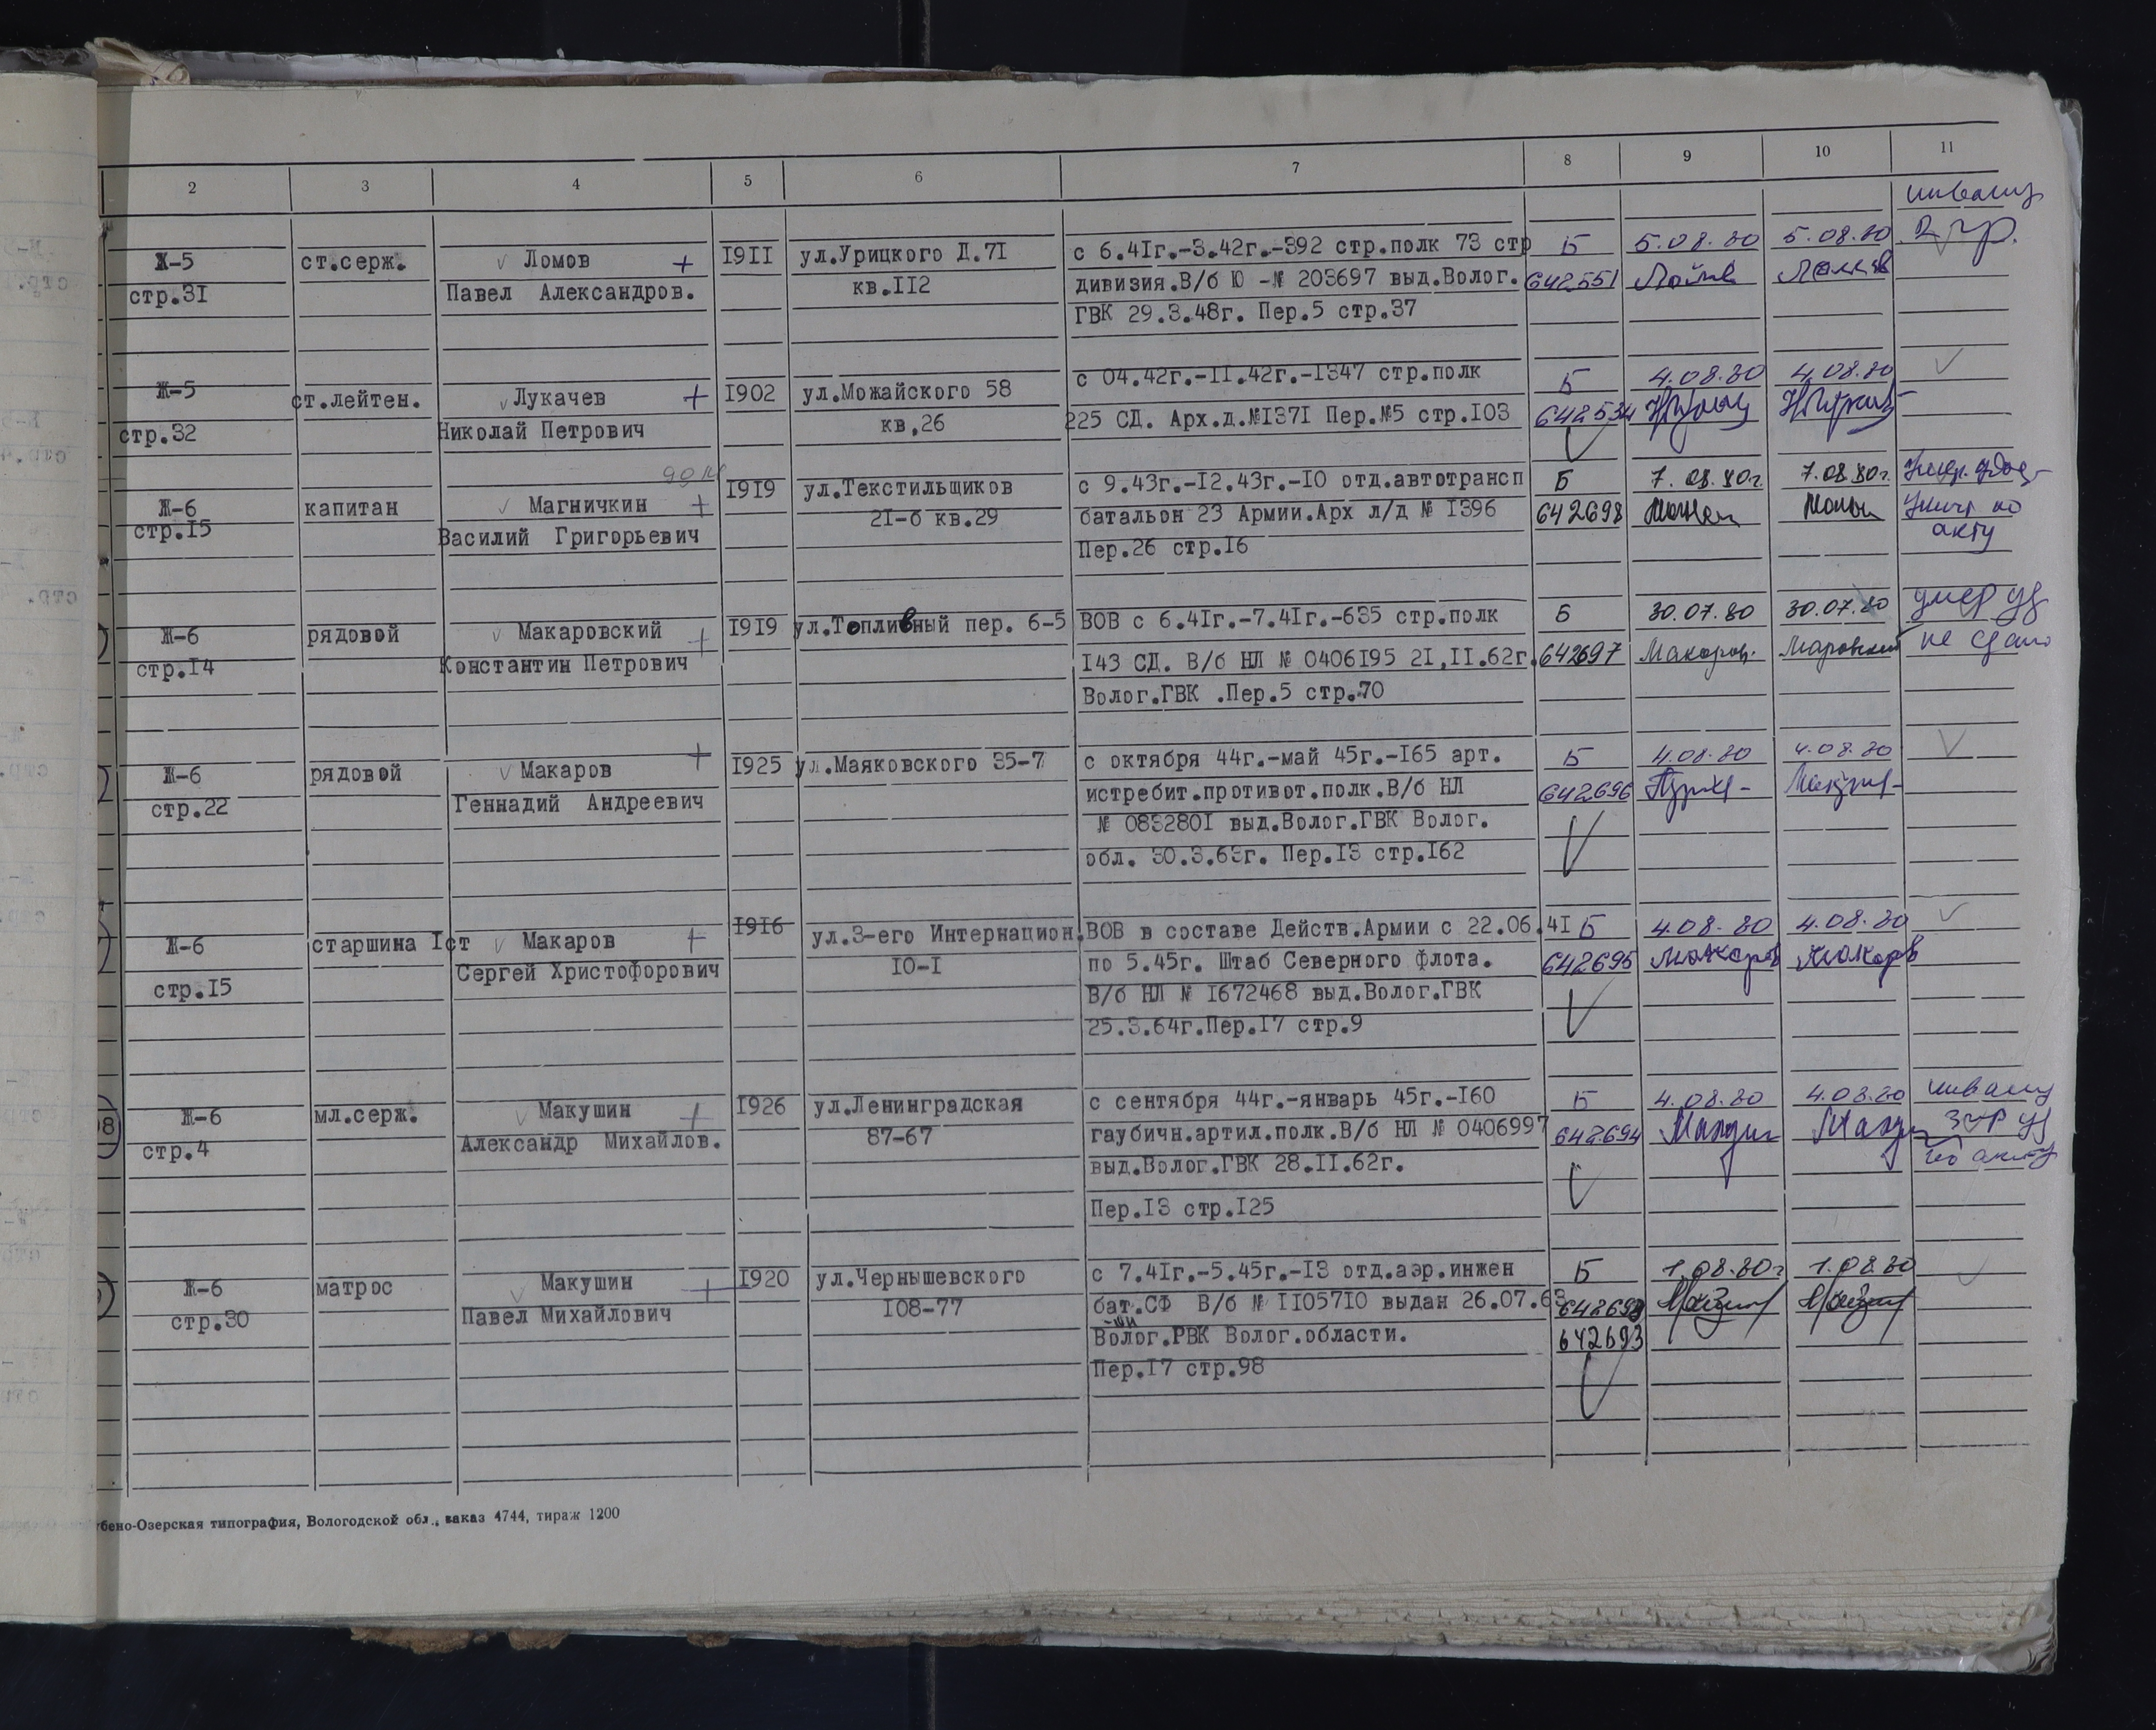 2 3 4 5 6 7 8 9 10 11
инвалид
Ж-5 ст.серж. Ломов + 1911 ул.Урицкого Д.71 с 6.41г.-3.42г.-392 стр.полк 73 стр Б 5.08.80 5.08.80 2 гр.
стр.31 Павел Александров. кв.112 дивизия.В/б Ю -№ 203697 выд.Волог. 642551
ГВК 29.3.48г. Пер.5 стр.37
Ж-5 ст.лейтен. Лукачев + 1902 ул.Можайского 58 с 04.42г.-11.42г.-1347 стр.полк Б 4.08.80 4.08.80
стр.32 Николай Петрович кв.26 225 СД. Арх.д.№1371 Пер.№5 стр.103 642534
Ж-6 капитан Магничкин + 1919 ул.Текстильщиков с 9.43г.-12.43г.-10 отд.автотрансп Б 7.08.80г. 7.08.80г.
стр.15 Василий Григорьевич 21-б кв.29 батальон 23 Армии.Арх л/д № 1396 642698 по
Пер.26 стр.16 акту
Ж-6 рядовой Макаровский + 1919 ул.Топливный пер. 6-5 ВОВ с 6.41г.-7.41г.-635 стр.полк Б 30.07.80 30.07.80 умер уд
стр.14 Константин Петрович 143 СД. В/б НЛ № 0406195 21.11.62г. 642697 не сдано
Волог.ГВК .Пер.5 стр.70
Ж-6 рядовой Макаров + 1925 ул.Маяковского 35-7 с октября 44г.-май 45г.-165 арт. Б 4.08.80 4.08.80
стр.22 Геннадий Андреевич истребит.противот.полк.В/б НЛ 642696
№ 0832801 выд.Волог.ГВК Волог.
обл. 30.3.63г. Пер.13 стр.162
Ж-6 старшина 1ст Макаров + 1916 ул.3-его Интернацион. ВОВ в составе Действ.Армии с 22.06.41 Б 4.08.80 4.08.80
стр.15 Сергей Христофорович 10-1 по 5.45г. Штаб Северного Флота. 642695 Макаров Макаров
В/б НЛ № 1672468 выд.Волог.ГВК
25.3.64г.Пер.17 стр.9
Ж-6 мл.серж. Макушин + 1926 ул.Ленинградская с сентября 44г.-январь 45г.-160 Б 4.08.80 4.08.80 инвалид
стр.4 Александр Михайлов. 87-67 гаубичн.артил.полк.В/б НЛ № 0406997 642694 3 гр уд
выд.Волог.ГВК 28.11.62г. по акту
Пер.13 стр.125
Ж-6 матрос Макушин + 1920 ул.Чернышевского с 7.41г.-5.45г.-13 отд.аэр.инжен Б 1.08.80г 1.08.80
стр.30 Павел Михайлович 108-77 бат.СФ В/б № 1105710 выдан 26.07.63
Волог.РВК Волог.области. 642693
Пер.17 стр.98
бено-Озерская типография, Вологодской обл., заказ 4744, тираж 1200